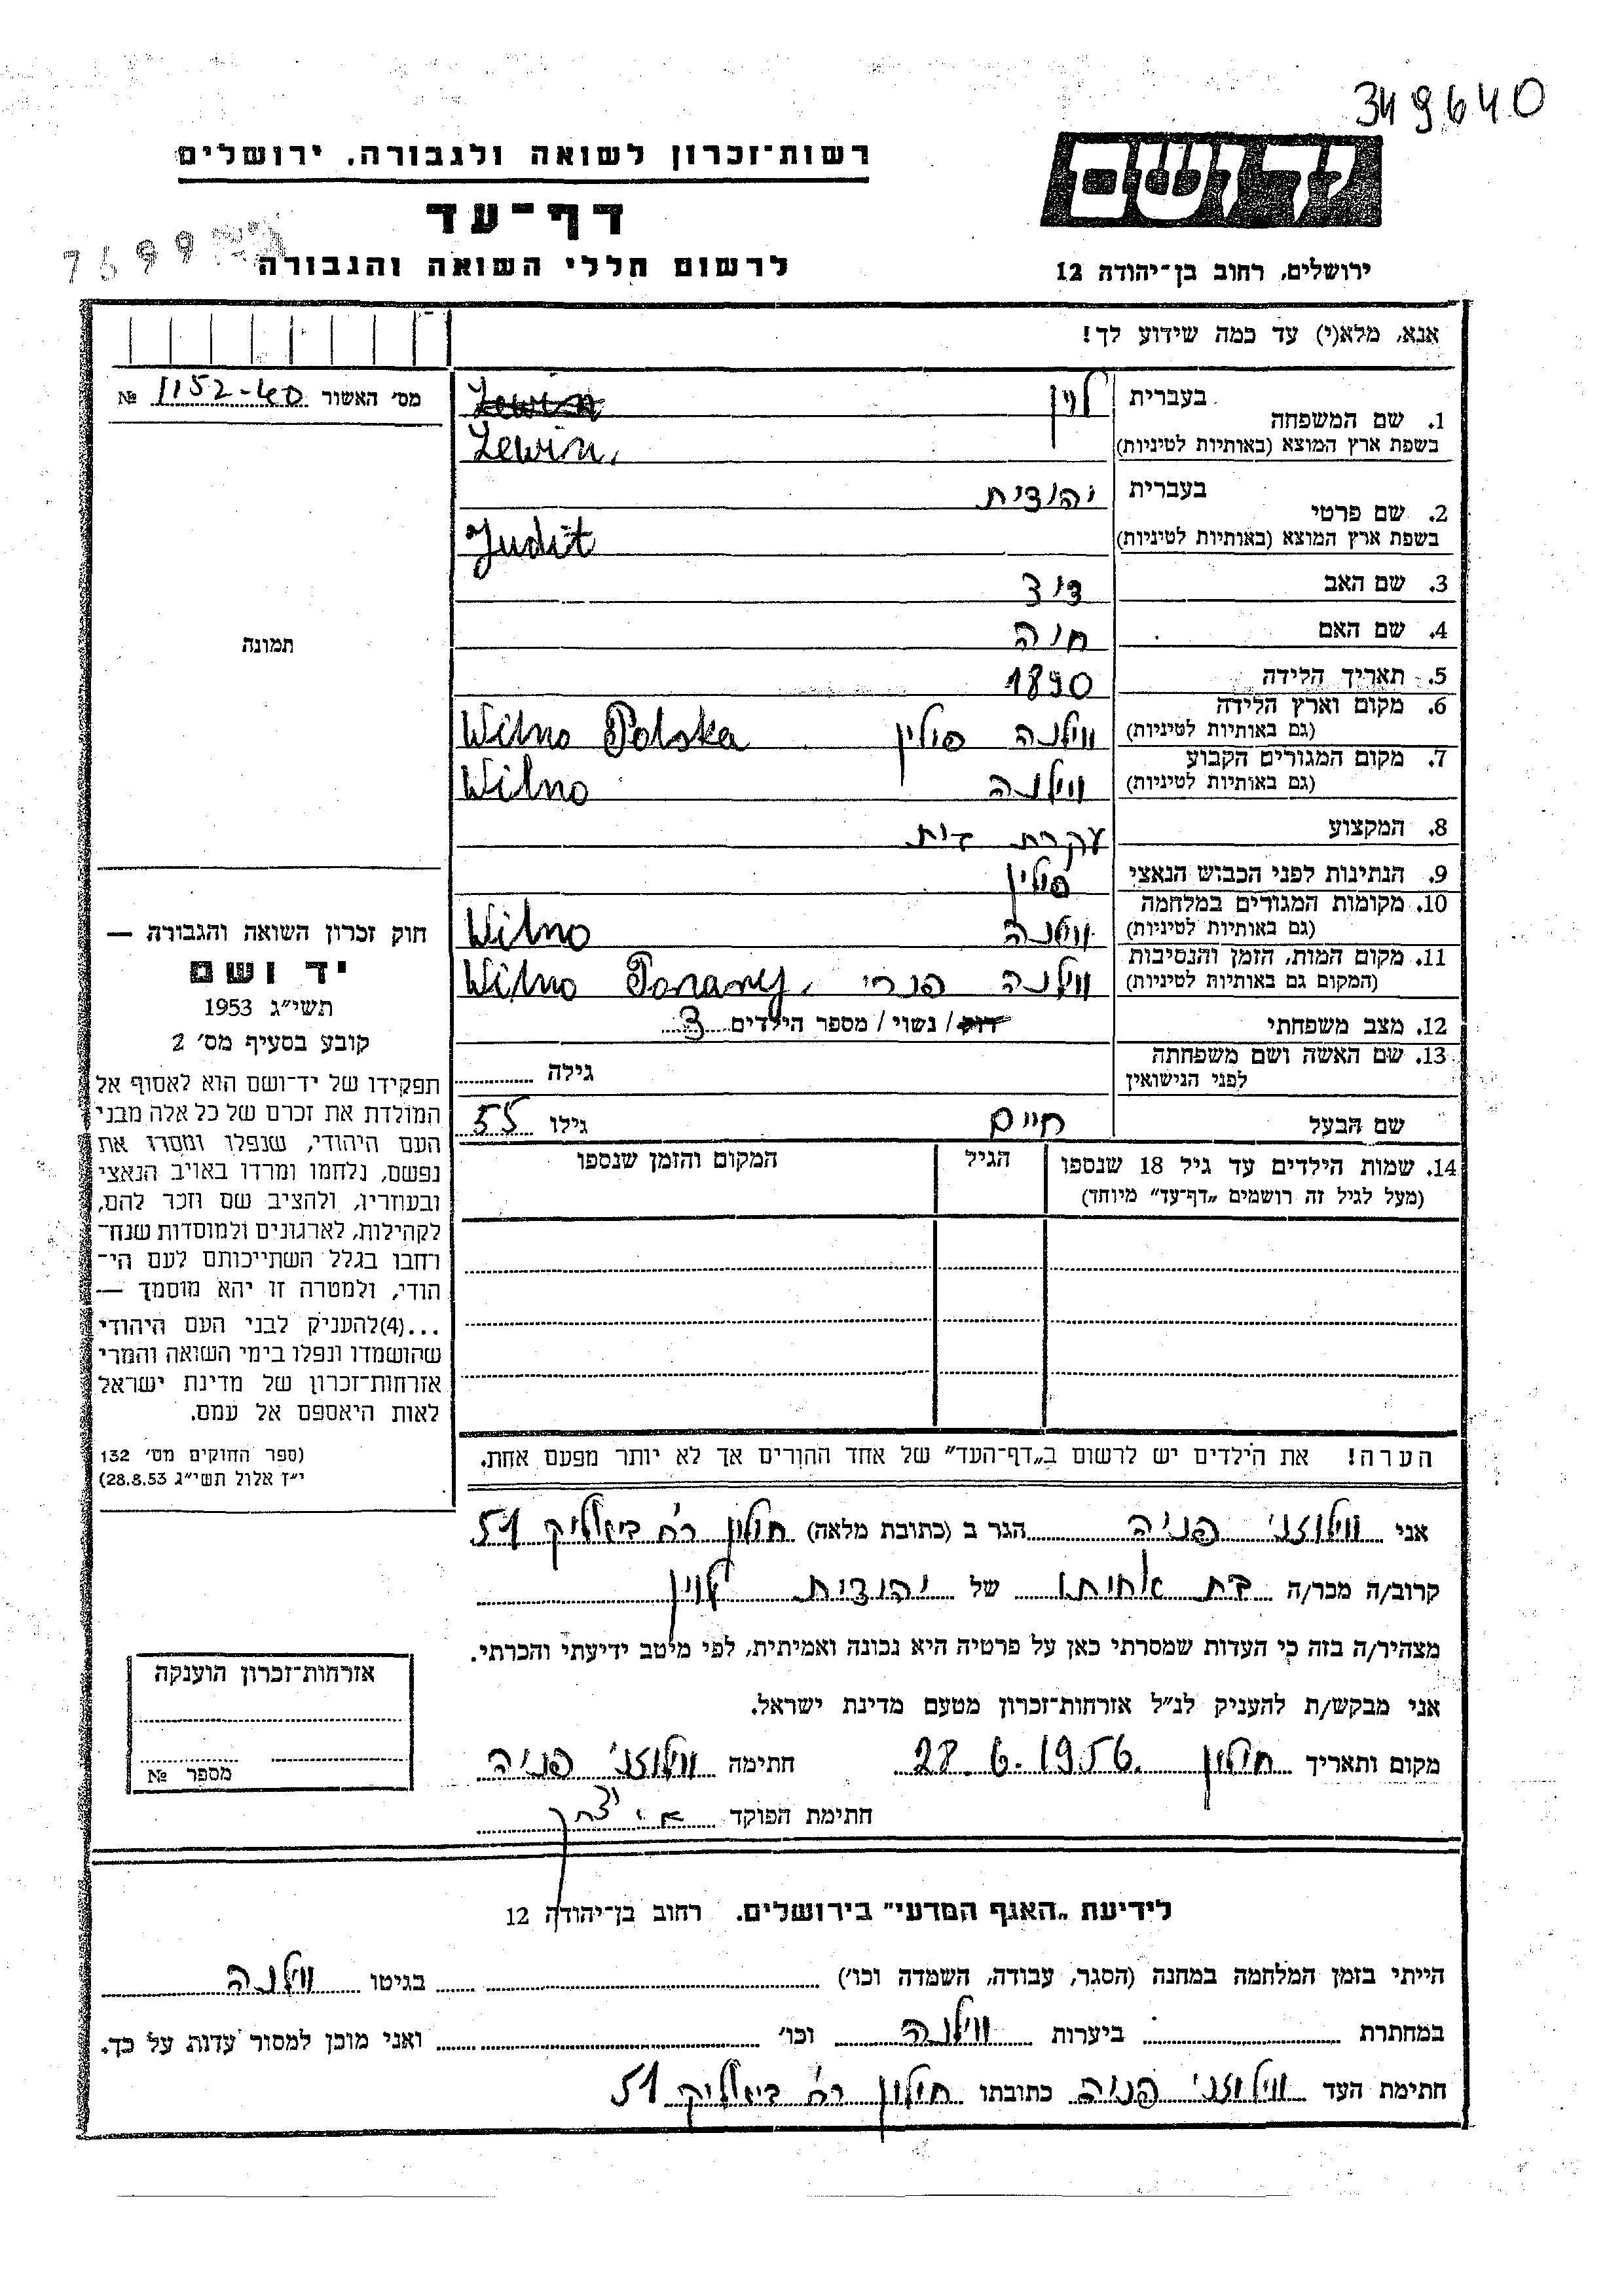 349640
רשות־זכרון לשואה ולגבורה. ירושלים
יד ושם
דף־עד
7699
לרשום חללי השואה והגבורה
ירושלים, רחוב בן־יהודה 12
אנא, מלא(י) עד כמה שידוע לך!
מס׳ האשור 1152-40 №
תמונה
1. שם המשפחה
בעברית לוין
בשפת ארץ המוצא (באותיות לטיניות) Lewin
2. שם פרטי
בעברית יהודית
בשפת ארץ המוצא (באותיות לטיניות) Judit
3. שם האב דוד
4. שם האם חנה
5. תאריך הלידה 1890
6. מקום וארץ הלידה
(גם באותיות לטיניות) ווילנה פולין Wilno Polska
7. מקום המגורים הקבוע
(גם באותיות לטיניות) ווילנה Wilno
8. המקצוע עקרת בית
9. הנתינות לפני הכבוש הנאצי פולין
10. מקומות המגורים במלחמה
(גם באותיות לטיניות) ווילנה Wilno
11. מקום המות, הזמן והנסיבות
(המקום גם באותיות לטיניות) ווילנה פנרי Wilno Ponary
12. מצב משפחתי רווק / נשוי / מספר הילדים 3
13. שם האשה ושם משפחתה
לפני הנישואין גילה
שם הבעל חיים גילו 55
14. שמות הילדים עד גיל 18 שנספו הגיל המקום והזמן שנספו
(מעל לגיל זה רושמים „דף־עד” מיוחד)
חוק זכרון השואה והגבורה —
יד ושם
תשי״ג 1953
קובע בסעיף מס׳ 2
תפקידו של יד־ושם הוא לאסוף אל
המולדת את זכרם של כל אלה מבני
העם היהודי, שנפלו ומסרו את
נפשם, נלחמו ומרדו באויב הנאצי
ובעוזריו, ולהציב שם וזכר להם,
לקהילות, לארגונים ולמוסדות שנח־
רחבו בגלל השתייכותם לעם הי־
הודי, ולמטרה זו יהא מוסמך —
...(4)להעניק לבני העם היהודי
שהושמדו ונפלו בימי השואה והמרי
אזרחות־זכרון של מדינת ישראל
לאות היאספם אל עמם.
(ספר החוקים מס׳ 132
י״ז אלול תשי״ג 28.8.53)
הערה! את הילדים יש לרשום ב„דף־העד” של אחד ההורים אך לא יותר מפעם אחת.
אני ווילוזני פניה הגר ב (כתובת מלאה) חולון רח ביאליק 51
קרוב/ה מכר/ה בת אחיתו של יהודית לוין
מצהיר/ה בזה כי העדות שמסרתי כאן על פרטיה היא נכונה ואמיתית, לפי מיטב ידיעתי והכרתי.
אני מבקש/ת להעניק לנ״ל אזרחות־זכרון מטעם מדינת ישראל.
מקום ותאריך חולון 28.6.1956. חתימה ווילוזני פניה
חתימת הפוקד
אזרחות־זכרון הוענקה
מספר №
לידיעת „האגף המדעי” בירושלים. רחוב בן־יהודה 12
הייתי בזמן המלחמה במחנה (הסגר, עבודה, השמדה וכו׳) בגיטו ווילנה
במחתרת ביערות ווילנה וכו׳ ואני מוכן למסור עדות על כך.
חתימת העד ווילוזני פניה כתובתו חולון רח ביאליק 51